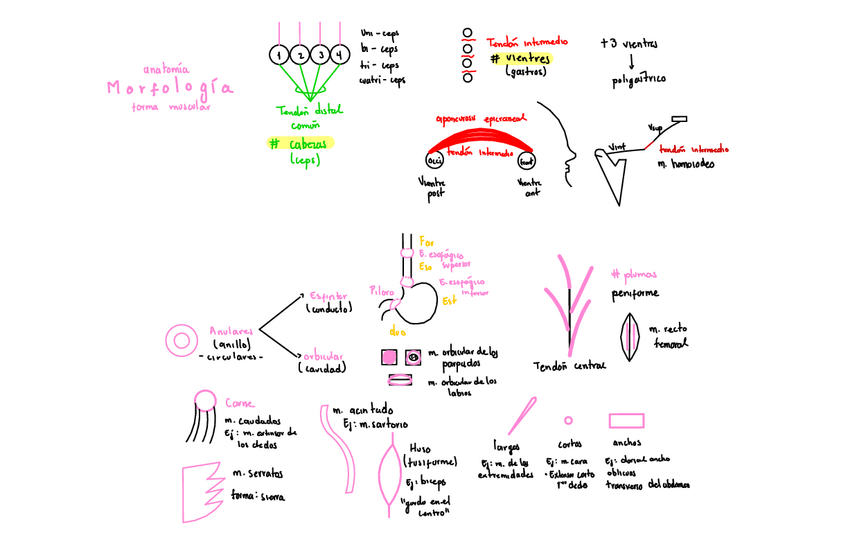 anatomía
Morfología
forma muscular
1 2 3 4
Uni - ceps
bi - ceps
tri - ceps
cuatri - ceps
Tendón distal
común
# cabezas
(ceps)
Tendón intermedio
# vientres
(gastros)
+3 vientres
poligástrico
aponeurosis epicraneal
tendón intermedio
Occi
front
Vientre
post
Vientre
ant
Vsup
Vinf
tendón intermedio
m. homoiodeo
Far
E. esofágico
superior
Eso
E. esofágico
inferior
Piloro
Est
duo
Anulares
(anillo)
- circulares -
Esfínter
(conducto)
orbicular
(cavidad)
m. orbicular de los
parpados
m. orbicular de los
labios
Tendón central
# plumas
peniforme
m. recto
femoral
Carne
m. caudados
Ej: m. extensor de
los dedos
m. serratos
forma: sierra
m. acintado
Ej: m. sartorio
Huso
(fusiforme)
Ej: biceps
"gordo en el
centro"
largos
Ej: m. de las
extremidades
cortos
Ej: m cara
• Extensor corto
1er dedo
anchos
Ej: dorsal ancho
oblicuos
transverso del abdomen